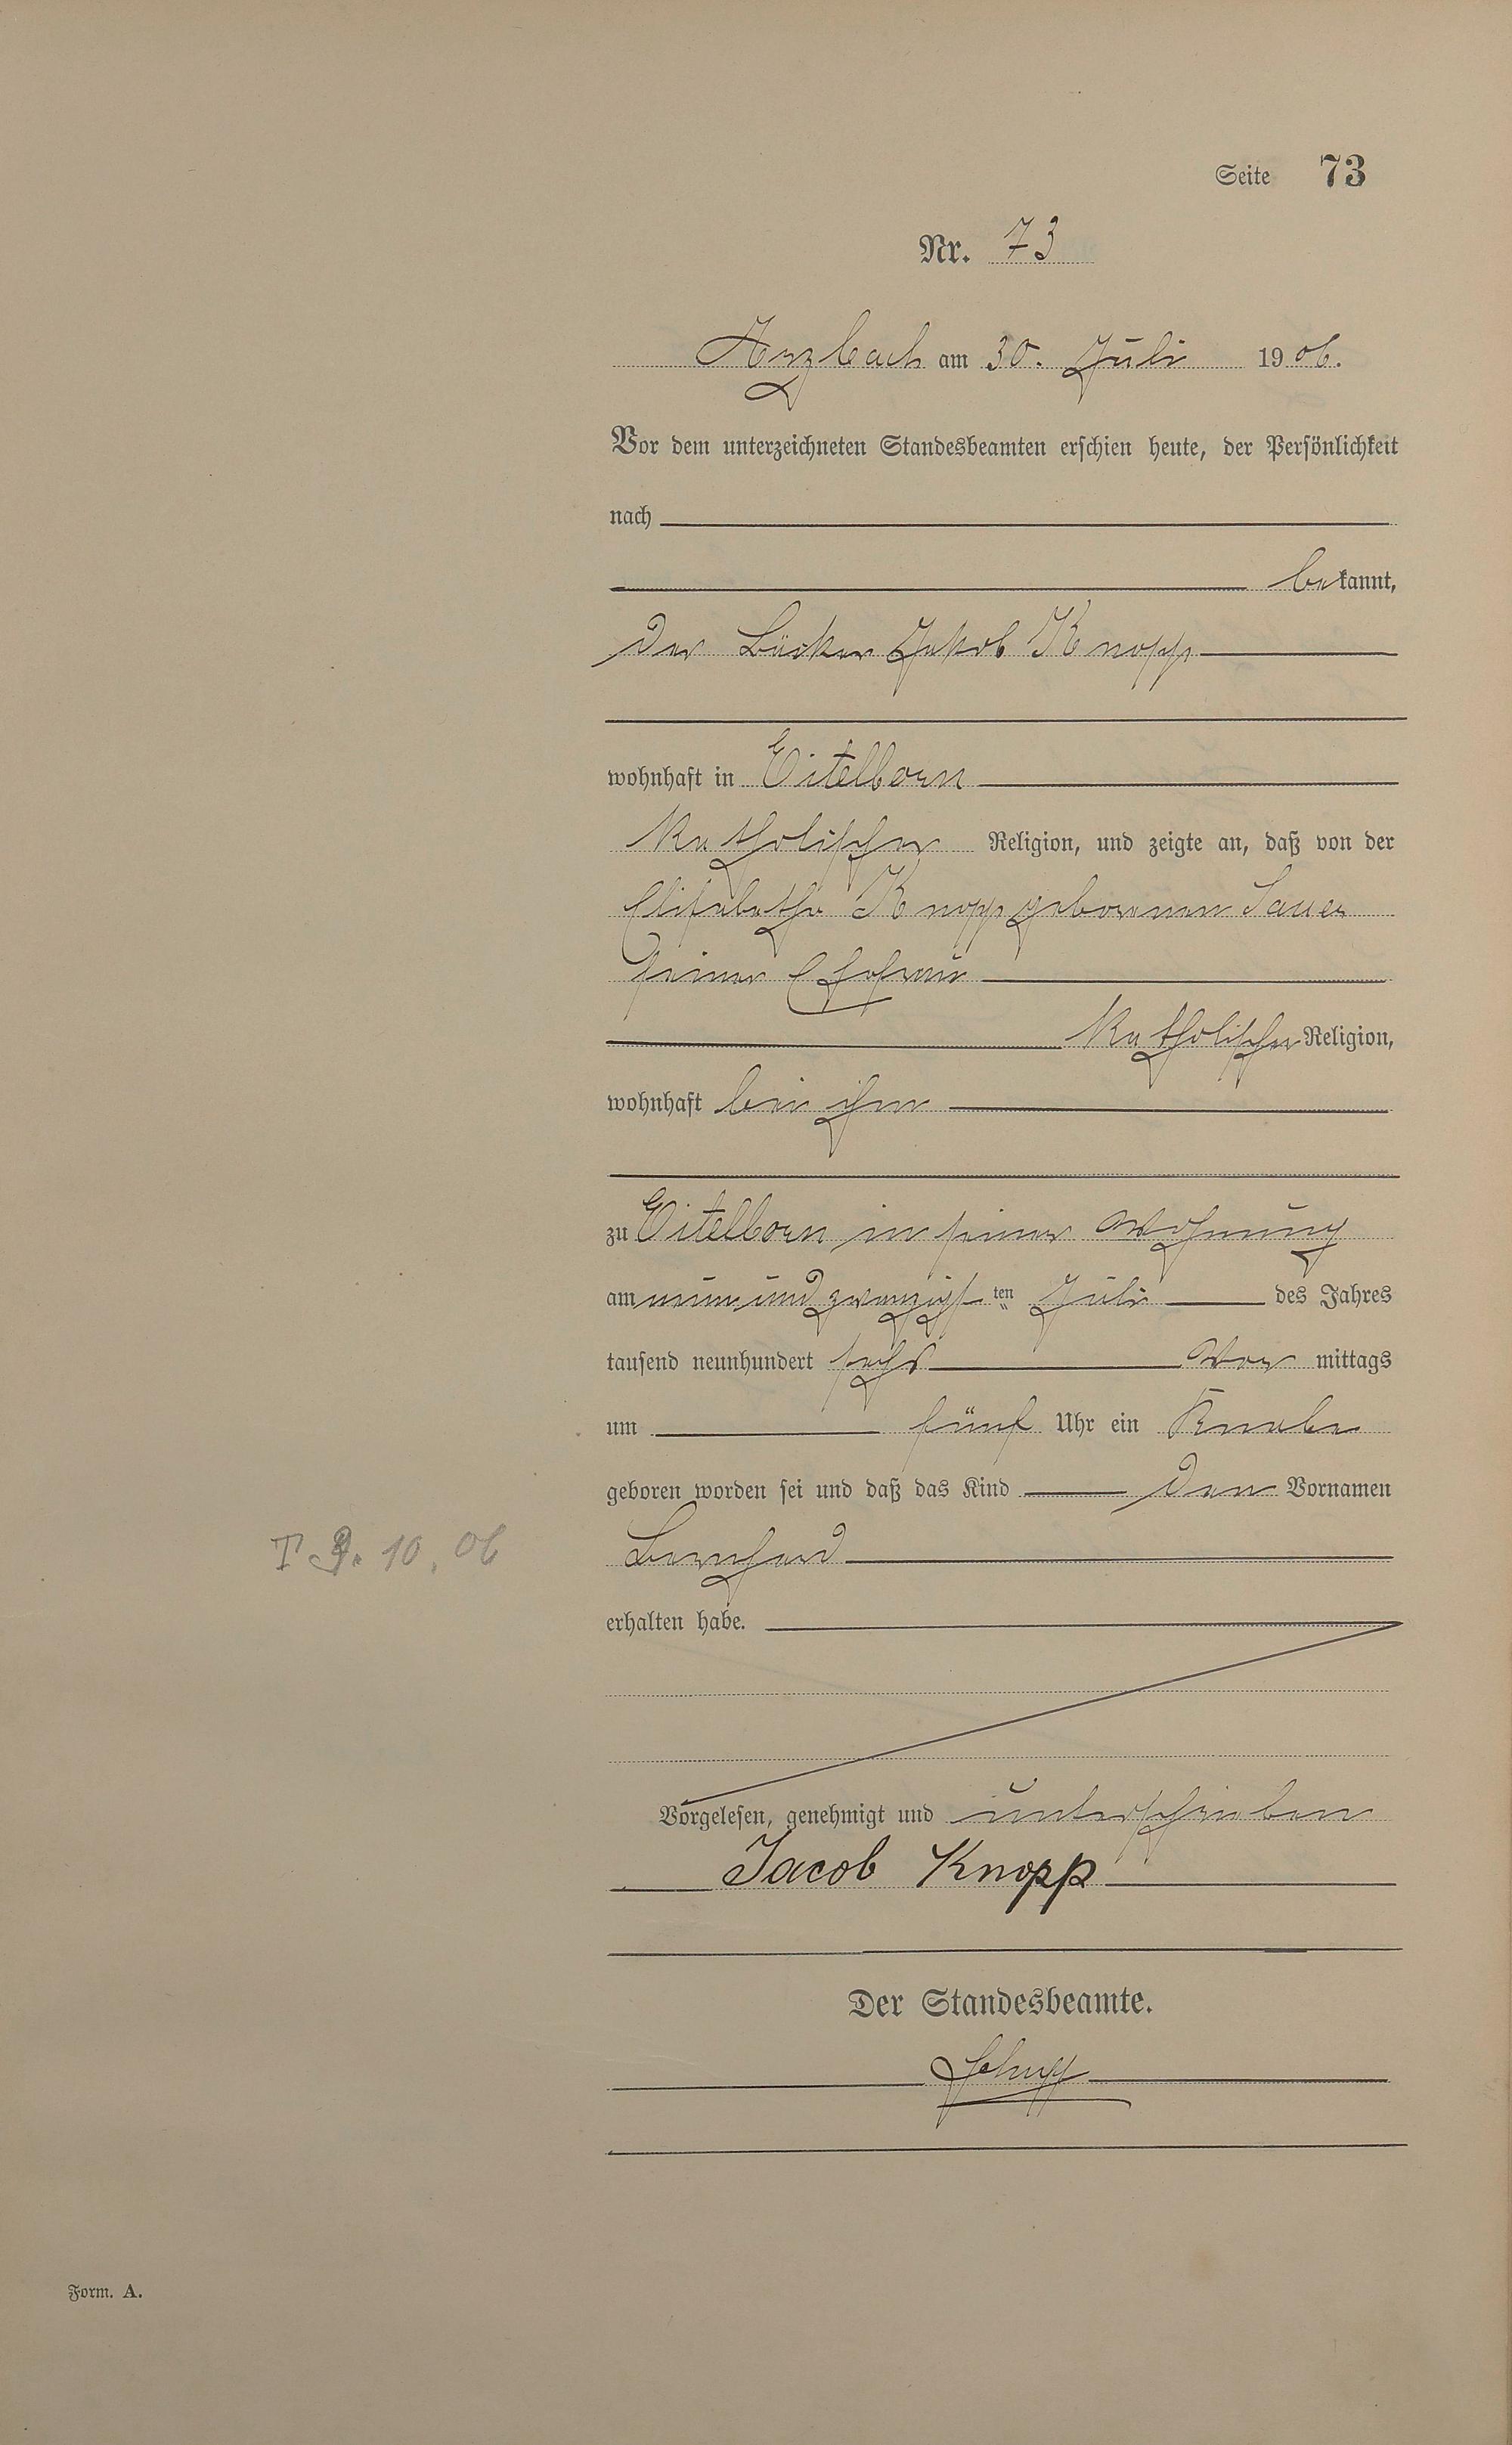 Seite 73
Nr. 73
Arzbach am 30. Juli 1906.
Vor dem unterzeichneten Standesbeamten erschien heute, der Persönlichkeit
nach
bekannt,
der Bäcker Jakob Knopp
wohnhaft in Eitelborn
katholischer Religion, und zeigte an, daß von der
Elisabetha Knopp geborenen Sauer
seiner Ehefrau
katholischer Religion,
wohnhaft bei ihm
zu Eitelborn in seiner Wohnung
am neunundzwanzigsten Juli des Jahres
tausend neunhundert sechs Vor mittags
um fünf Uhr ein Knabe
geboren worden sei und daß das Kind den Vornamen
Bernhard
T 9. 10. 06
erhalten habe.
Vorgelesen, genehmigt und unterschrieben
Jacob Knopp
Der Standesbeamte.
Form. A.